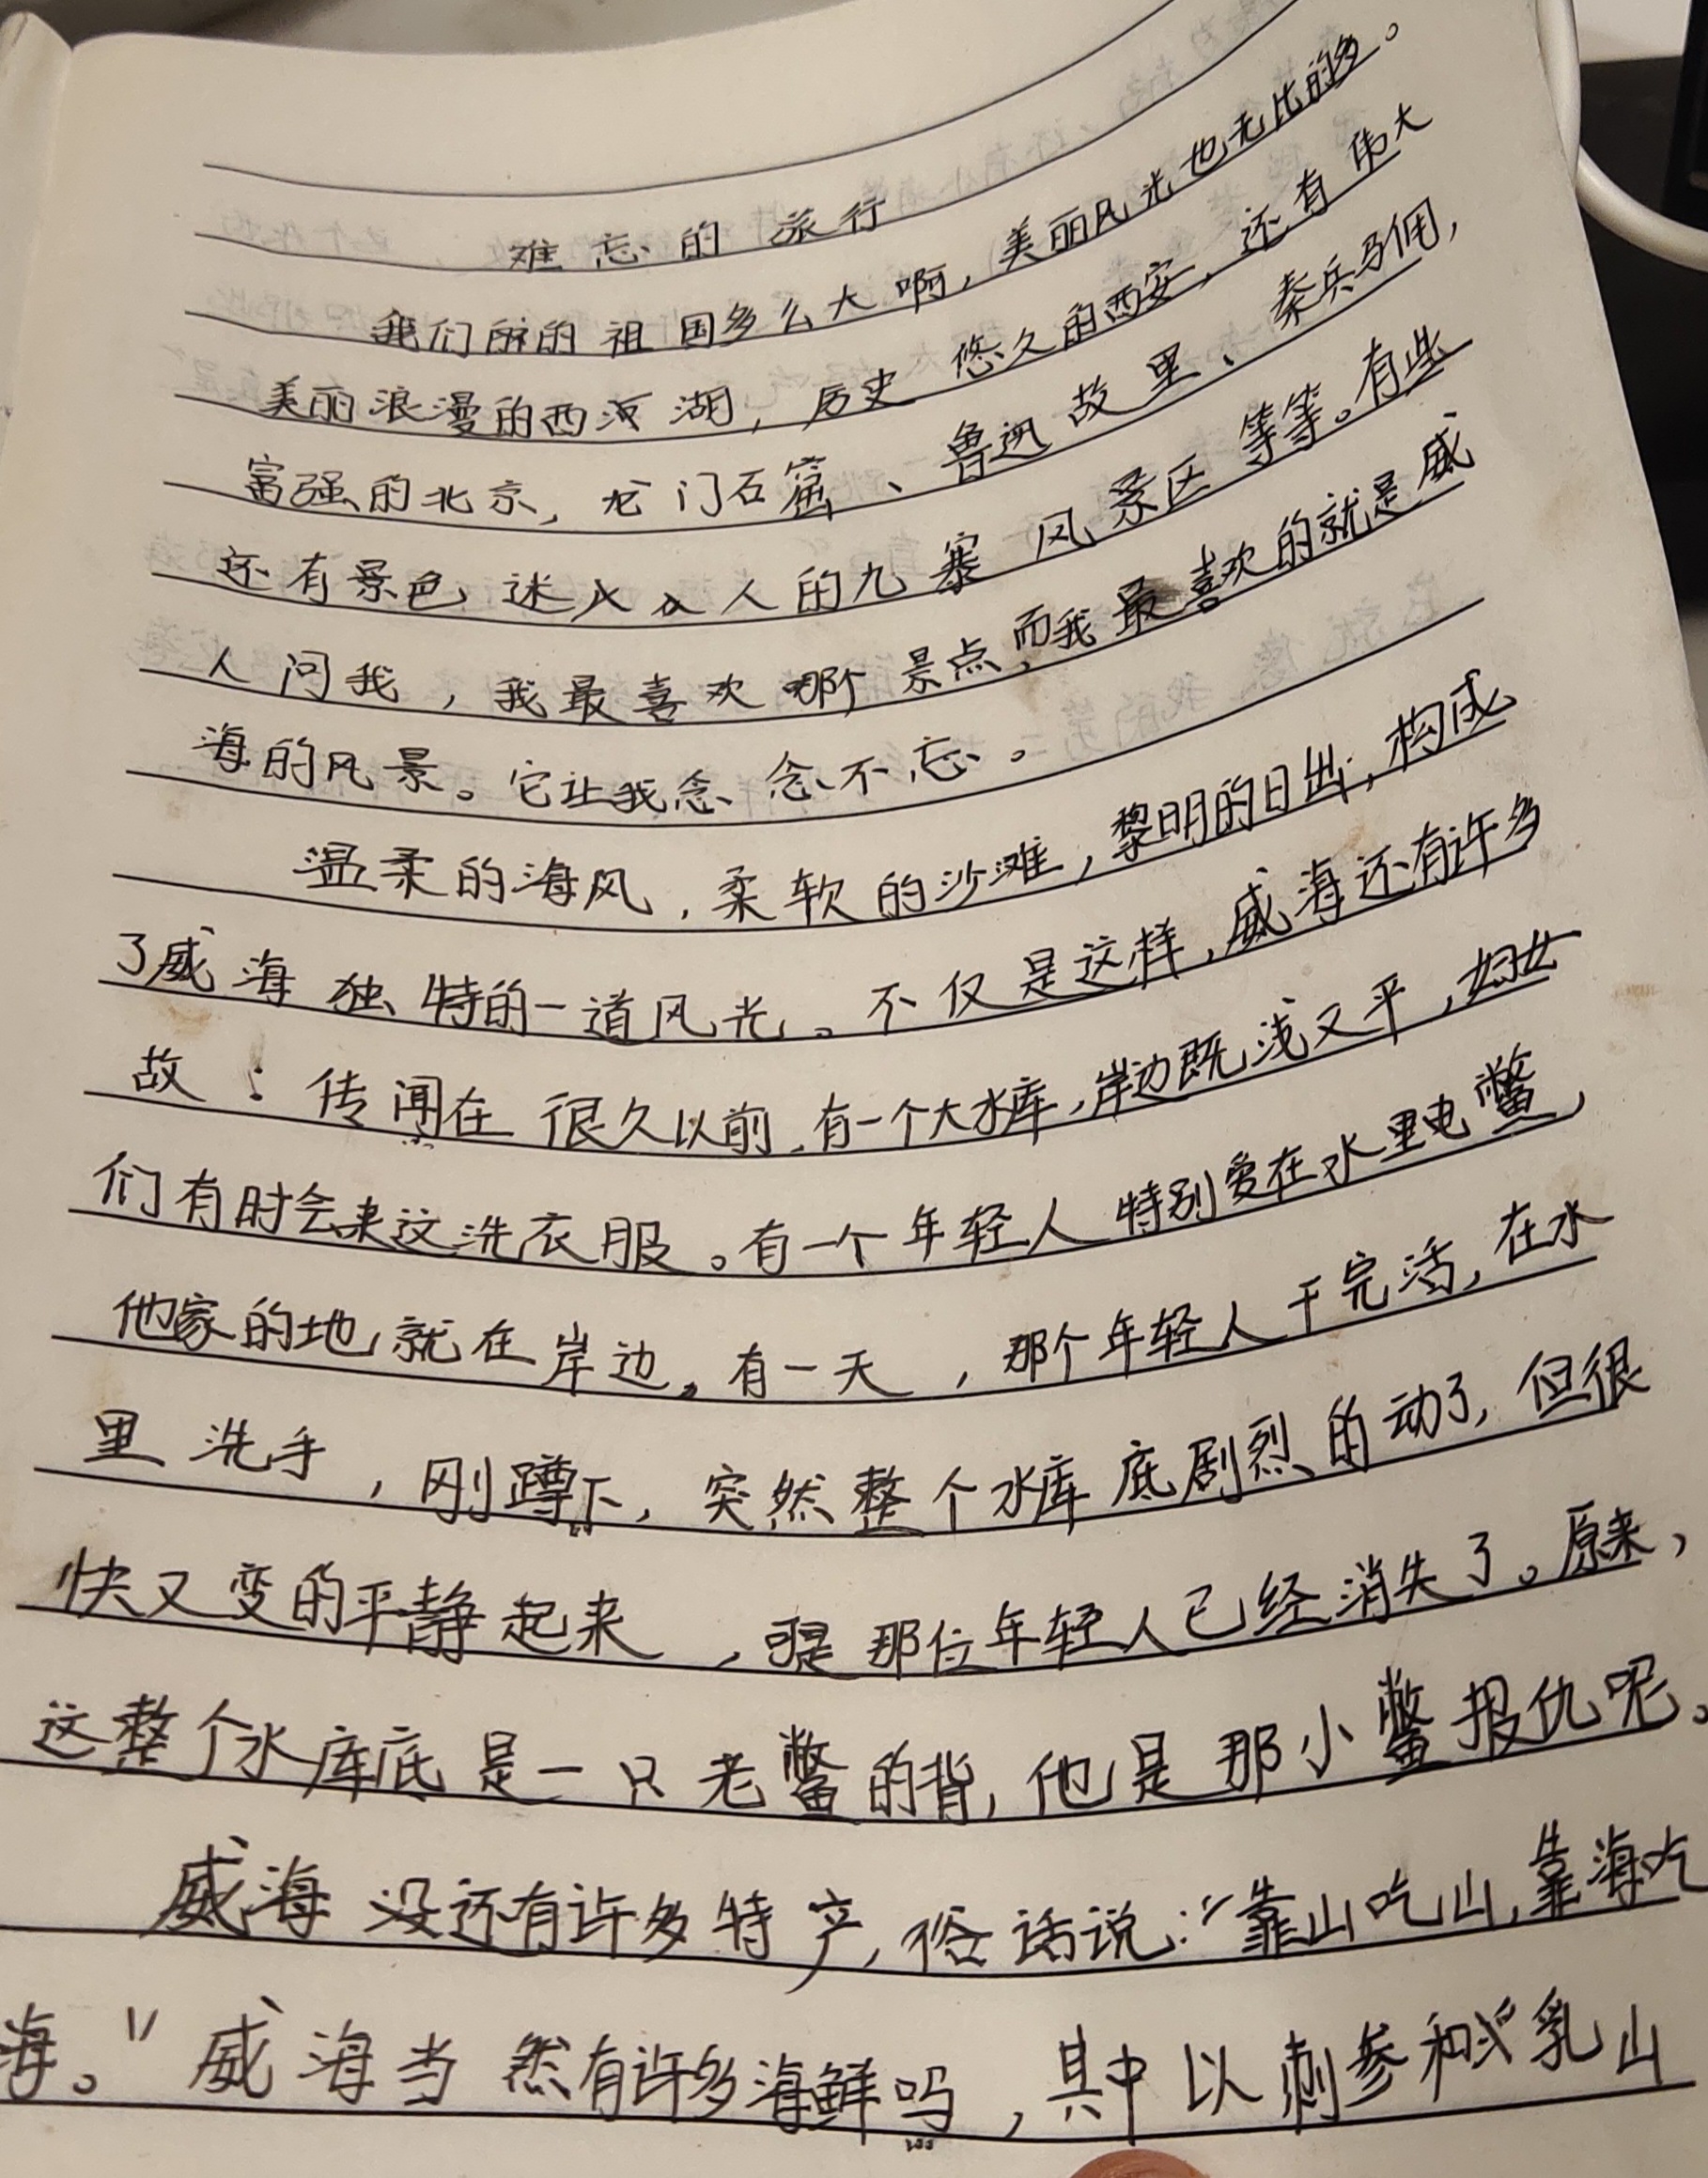 难忘的旅行
我们的祖国多么大啊，美丽风光也无比的多。
美丽浪漫的西湖，历史悠久的西安，还有伟大
富强的北京，龙门石窟、鲁迅故里、秦兵马俑，
还有景色迷人的九寨风景区等等。有些
人问我，我最喜欢哪个景点，而我最喜欢的就是威
海的风景。它让我念念不忘。
温柔的海风，柔软的沙滩，黎明的日出，构成
了威海独特的一道风光。不仅是这样，威海还有许多
故！传闻在很久以前，有一个大水库，岸边既浅又平，妇女
们有时会来这洗衣服。有一个年轻人特别爱在水里电鳖，
他家的地就在岸边。有一天，那个年轻人干完活，在水
里洗手，刚蹲下，突然整个水库底剧烈的动了，但很
快又变的平静起来，可是那位年轻人已经消失了。原来，
这整个水库底是一只老鳖的背，他是那小鳖报仇呢。
威海还有许多特产，俗话说：“靠山吃山，靠海吃
海。”威海当然有许多海鲜吗，其中以刺参和“乳山